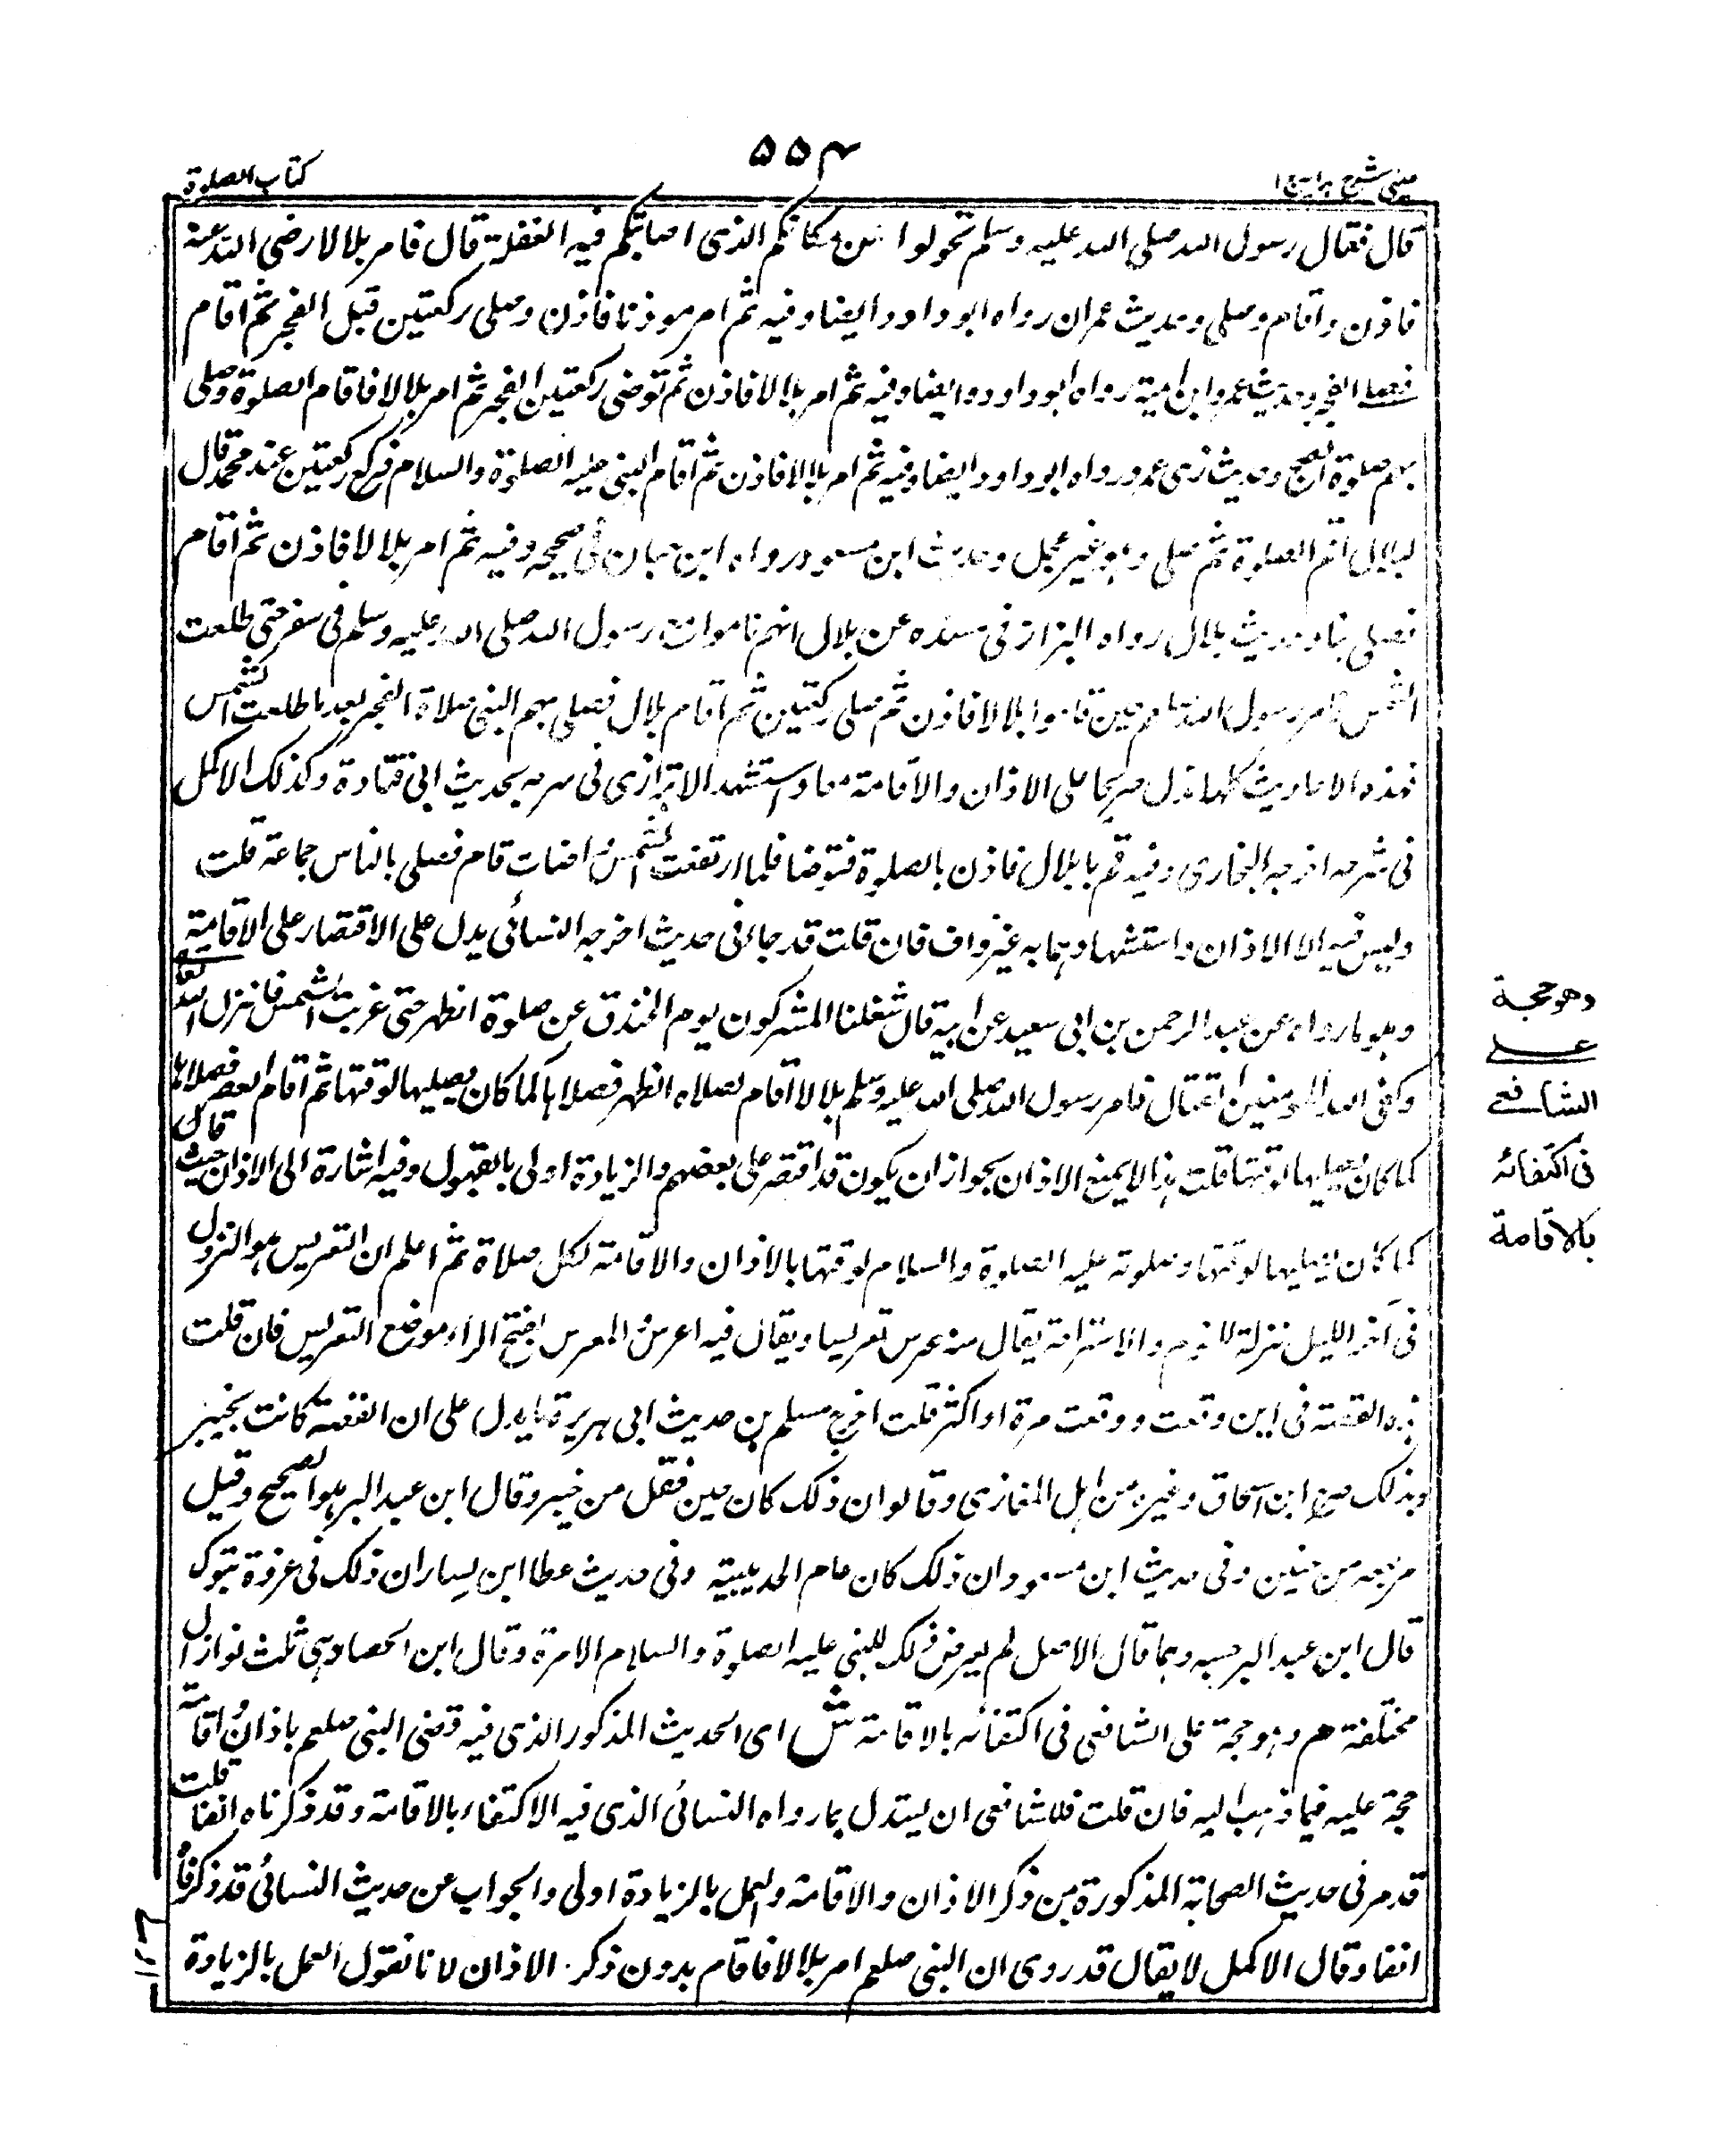 عینی شرح ہدایہ ج ۱
۵۵۴
کتاب الصلوة
قال فقال رسول الله صلی الله علیه وسلم تحولوا عن مکانکم الذی اصابتکم فیه الغفلة قال فامر بلالا رضی الله عنه
فاذن واقام وصلی وحدیث عمران رواه ابو داود ایضا وفیه ثم امر موذنا فاذن وصلی رکعتین قبل الفجر ثم اقام
فصلی الفجر وحدیث عمرو ابن امیة رواه ابو داود ایضا وفیه ثم امر بلالا فاذن ثم توضی رکعتین الفجر ثم امر بلالا فاقام الصلوة وصلی
بهم صلوة الصبح وحدیث ذی مخبر رواه ابو داود ایضا وفیه ثم امر بلالا فاذن ثم اقام النبی علیه الصلوة والسلام فرکع رکعتین عند محمد قال
لبلال اقم الصلوة ثم صلی وهو غیر عجل وحدیث ابن مسعود رواه ابن حبان فی صحیحه وفیه ثم امر بلالا فاذن ثم اقام
فصلی بنا وحدیث بلال رواه البزار فی مسنده عن بلال انهم ناموا مع رسول الله صلی الله علیه وسلم فی سفر حتی طلعت
الشمس فامر رسول الله صلعم حین قاموا بلالا فاذن ثم صلی رکعتین ثم اقام بلال فصلی بهم النبی صلاة الفجر بعد ما طلعت الشمس
فهذه الاحادیث کلها تدل صریحا علی الاذان والاقامة معا واستشهد الاترازی فی شرحه بحدیث ابی قتادة وکذلک الاکمل
فی شرحه اخرجه البخاری وفیه قم یا بلال فاذن بالصلوة فتوضا فلما ارتفعت الشمس وابیاضت قام فصلی بالناس جماعة قلت
ولیس فیه الا الاذان واستشهادهما به غیر واف فان قلت قد جاء فی حدیث اخرجه النسائی یدل علی الاقتصار علی الاقامة
وهو ما رواه عن عبد الرحمن بن ابی سعید عن ابیه قال شغلنا المشرکون یوم الخندق عن صلوة الظهر حتی غربت الشمس فانزل الله تعالی
وکفی الله المؤمنین القتال فامر رسول الله صلی الله علیه وسلم بلالا اقام لصلاة الظهر فصلاها کما کان یصلیها لوقتها ثم اقام العصر فصلاها
کما کان یصلیها لوقتها قلت هذا لا یمنع الاذان بجواز ان یکون قد اقتصر علی بعضهم والزیادة اولی بالقبول وفیه اشارة الی الاذان حیث قال
کما کان یصلیها لوقتها وصلوته علیه الصلوة والسلام لوقتها بالاذان والاقامة لکل صلاة ثم اعلم ان التعریس هو النزول
فی آخر اللیل نزلة للنوم والاستراحة یقال منه عرس تعریسا ویقال فیه اعرس والمعرس بفتح الراء موضع التعریس فان قلت
هذه القصة فی این وقعت ووقعت مرة او اکثر قلت اخرج مسلم من حدیث ابی هریرة ما یدل علی ان القصة کانت بخیبر
وبذلک صرح ابن اسحاق وغیره من اهل المغازی وقالوا ان ذلک کان حین قفل من خیبر وقال ابن عبد البر هو الصحیح وقیل
مرجعه من حنین وفی حدیث ابن مسعود ان ذلک کان عام الحدیبیة وفی حدیث عطا ابن یسار ان ذلک فی غزوة تبوک
قال ابن عبد البر حسبه وهما قال الاصل لم یعرض ذلک للنبی علیه الصلوة والسلام الا مرة وقال ابن الحصار هی ثلث نوازل
مختلفة هم وهو حجة علی الشافعی فی اکتفائه بالاقامة ش ای الحدیث المذکور الذی فیه قضی النبی صلعم باذان واقامة
حجة علیه فیما ذهب الیه فان قلت فللشافعی ان یستدل بما رواه النسائی الذی فیه الاکتفاء بالاقامة وقد ذکرناه انفا قلت
قد مر فی حدیث الصحابة المذکورة من ذکر الاذان والاقامة والعمل بالزیادة اولی والجواب عن حدیث النسائی قد ذکرناه
انفا وقال الاکمل لا یقال قد روی ان النبی صلعم امر بلالا فاقام بدون ذکر الاذان لانا نقول العمل بالزیادة
وهو حجة
علی
الشافعی
فی اکتفائه
بالاقامة